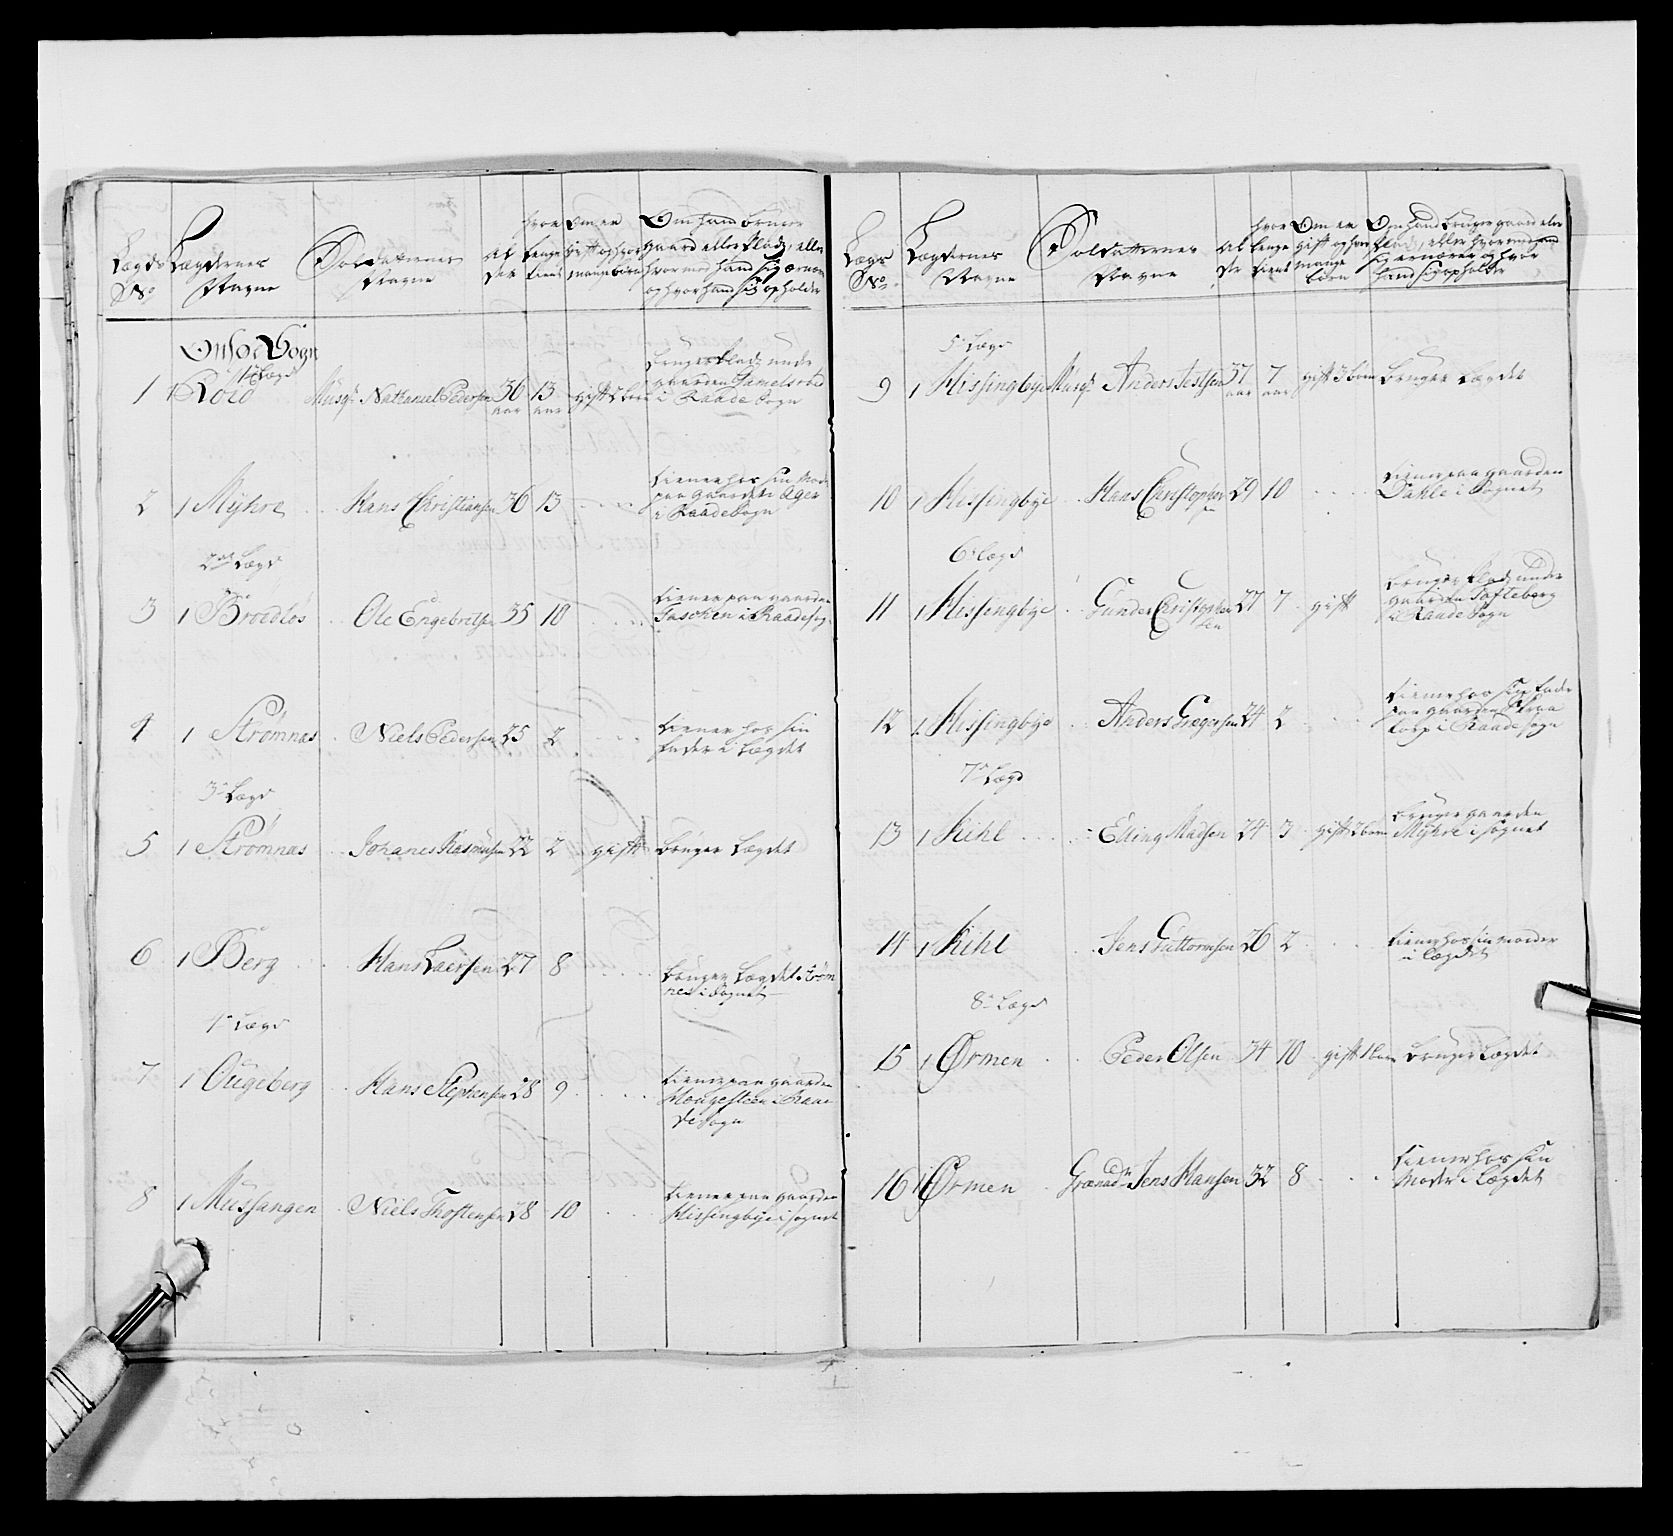 Lægds No
Lægdernes Nagne
Soldatternes Nagne
Al der
hvor lenge tient
Om en gift og hvor mange børn
Om hand bruger gaard eller Plads, eller hvormed hand sig ernærer og hvor hand sig opholder
Onsøe Sogn
1ste Lægd
1 1 Musqr Nathanael Pedersen 36 aar 13 aar gift
bruger Plads under gaarden i Raade Sogn
2 1 Myhre Hans Christiansen 36 13
tiener hos sin paa gaarden Ager i Raade Sogn
2det Lægd
3 1 Broedløs Ole Engebretsen 35 10
tiener paa gaarden i Raade sogn
4 1 Strømnæs Niels Pedersen 25 2
tiener hos sin fader i Lægdet
3e Lægd
5 1 Strømnæs Johanes Rasmusen 22 2 gift bruger Lægdet
6 1 Berg Hans Laersen 27 8
bruger Lægdet Strømnes i Sognet
4e Lægd
7 1 Ougeberg Hans Stephensen 28 9
tiener paa gaarden Mongesteen i Raade Sogn
8 1 Mussangen Niels Thostensen 28 10
tiener paa gaarden Kissingbye i sognet
Lægs No
Lægdernes Nagne
Soldatternes Nagne
Al der
hvor lenge tient
Om en gift og hvor mange børn
Om hand bruger gaard eller Plads, eller hvormed hand sig ernærer og hvor hand sig opholder
5e Lægd
9 1 Kissingbye Musqr Anders 37 aar 7 aar gift 3 børn bruger Lægdet
10 1 Kissingbye Hans Christophersen 29 10
tiener paa gaarden Dahle i Sognet
6e Lægd
11 1 Kissingbye Gunder Christophersen 27 7 gift
bruger Plads under gaarden Tofteberg i Raade Sogn
12 1 Kissingbye Anders Gregersen 24 2
tiener hos sin fader paa gaarden i Raade sogn
7e Lægd
13 1 Kihl Elling Madsen 24 3 gift 2 børn
bruger gaarden Myhre i sognet
14 1 Kihl Jens Guttormsen 26 2
tiener hos sin moder i Lægdet
8e Lægd
15 1 Ørmen Peder Olsen 34 10 gift 1 barn bruger Lægdet
16 1 Ørmen Grenadr Jens Hansen 32 8
tiener hos sin Moder i Lægdet